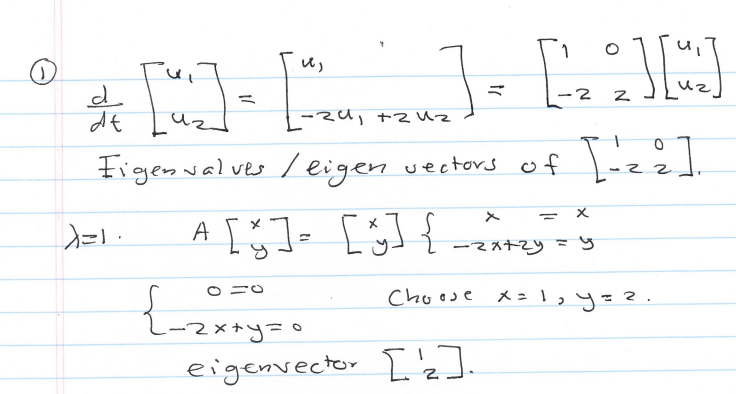 ① d/dt [u₁; u₂] = [u₁; -2u₁ + 2u₂] = [1 0; -2 2] [u₁; u₂]
Eigenvalues / eigen vectors of [1 0; -2 2].
λ=1. A [x; y] = [x; y] { x = x; -2x+2y = y
{ 0=0; -2x+y=0 Choose x=1, y=2.
eigenvector [1; 2].